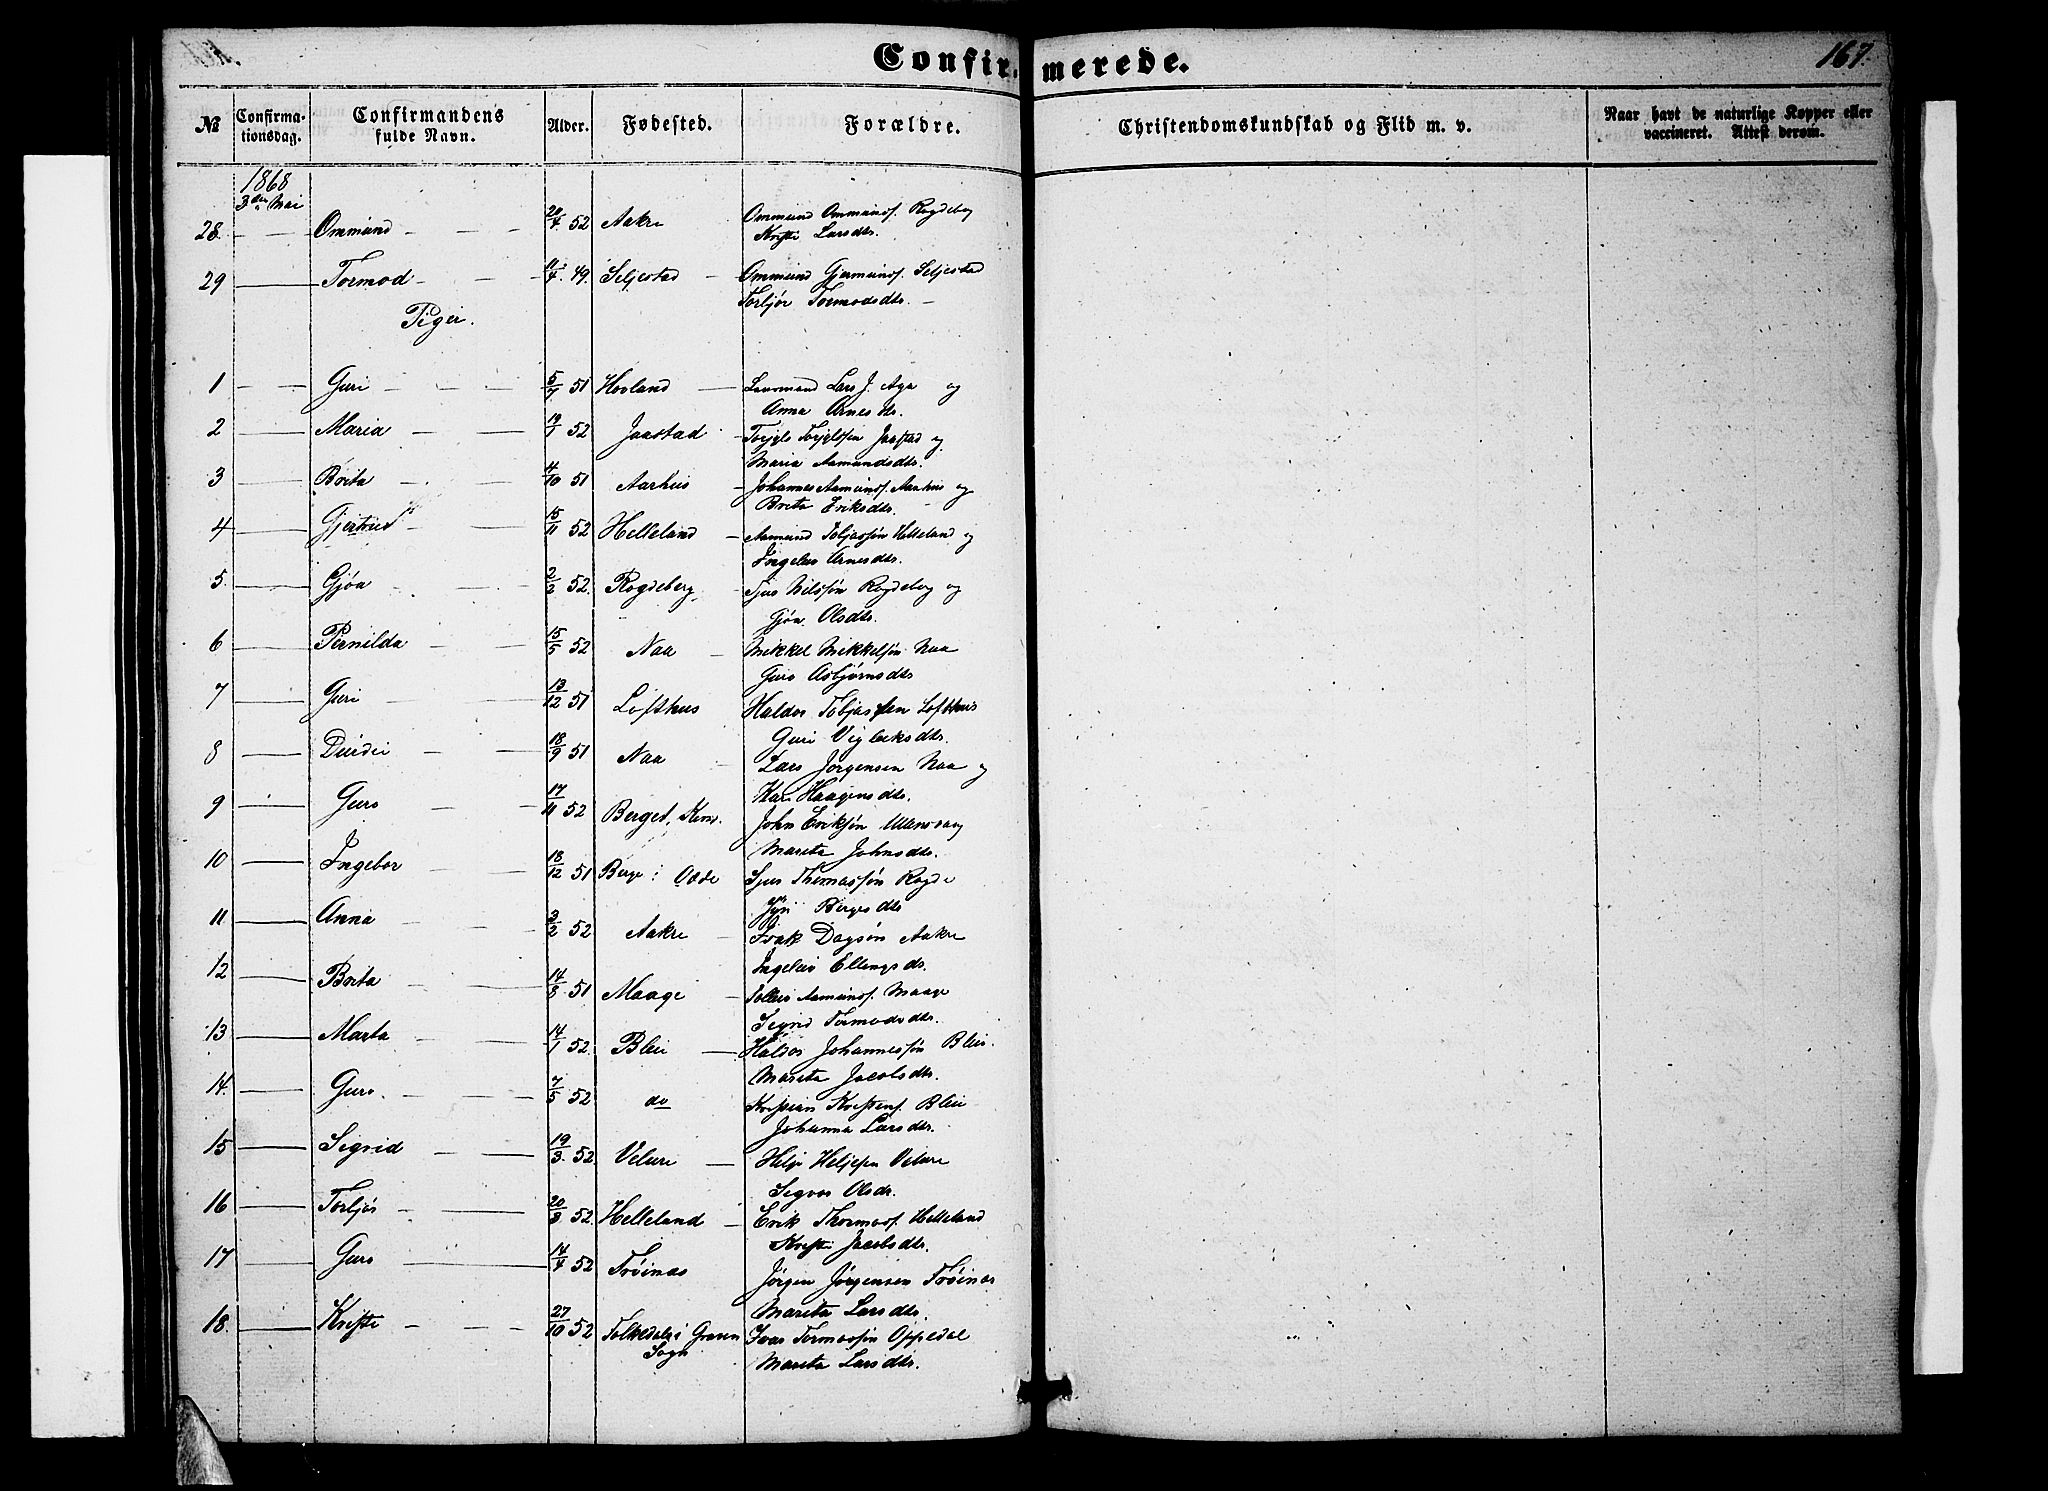 Confirmerede.
167.
№ Confirmationsdag. Confirmandens fulde Navn. Alder. Fødested. Forældre. Christendomskundskab og Flid m. v. Naar havt de naturlige Kopper eller vaccineret. Attest derom.
1868
3die Mai
28. Ommund 20/4 52 Aakre Ommund Ommundsf. Rogdeberg
Kristi Larsdtr.
29 Tormod 11/4 49. Seljestad Ommund Gjermundsf. Seljestad
Torbjør Tormodsdtr.
Piger.
1 Guri 5/7 51 Hovland Lensmand Lars J. Aga og
Anna Arnesdtr.
2 Maria 19/7 52 Jaastad Torjels Torjelssøn Jaastad og
Maria Aamundsdtr.
3 Brita 4/10 51 Aarhus Johannes Aamundsf. Aarhus og
Brita Eriksdtr.
4 Gjertrud 15/11 52 Helleland Aamund Tobjassøn Helleland og
Ingeleiv Arnesdtr.
5. Gjøa 2/2 52. Rogdeberg Sjur Nilssøn Rogdeberg og
Gjøa Olsdtr.
6 Pernilda 15/5 52 Naa Mikkel Mikkelsøn Naa
Guro Asbjørnsdtr
7 Guri 13/12 51 Lofthus Haldor Tobjassen Lofthus
Guri Vigleiksdtr.
8 Durdei 18/9 51 Naa Lars Jørgensen Naa og
Kari Haagensdtr.
9 Guro 17/11 52 Berget, Kins. John Eriksøn Ullensvang
Marita Johnsdtr.
10 Ingebor 18/12 51 Berge i Odde Sjur Thomassøn Rogde
Jyri Bergesdtr
11 Anna 3/2 52 Aakre Isak Dagsøn Aakre
Ingeleiv Ellingsdr.
12 Brita 14/8 51 Maage Tolleiv Aamundsf. Maage
Sigrid Tormodsdtr.
13 Marta 14/1 52. Bleie Haldor Johannessøn Bleie.
Marita Jacobsdtr.
14. Guro. 7/5 52 do Kristian Kristensf. Bleie
Johanna Larsdtr.
15 Sigrid 19/3. 52. Velure Helje Heljesen Velure
Sigvor Olsdr.
16 Torbjør 20/3 52. Helleland Erik Thormosf. Helleland
Kristi Jacobsdtr.
17 Guro 14/4 52 Trøinas Jörgen Jörgensen Trøinas
Marita Larsdtr.
18. Kristi 27/10 52 Folkedal i Graven Sogn Ivar Tormossøn Oppedal
Marita Larsdtr.